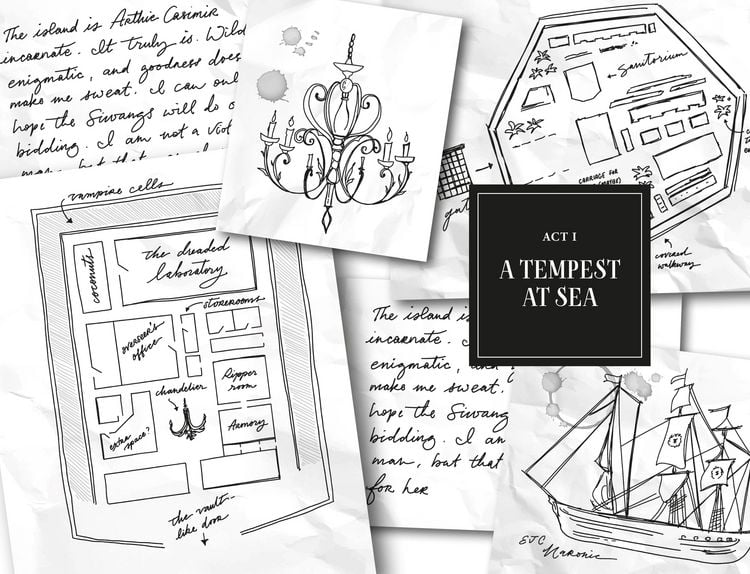 The island is Arthie Casimir
incarnate. It truly is. Wild
enigmatic, and goodness does
make me sweat. I can onl
hope the Siwangs will do o
bidding. I am not a viol
man, but that
Sanitorium
CARRIAGE FOR
covered
walkway
ACT I
A TEMPEST
AT SEA
vampire cells
coconuts
the dreaded
laboratory
STOREROOMS
overseer's
office
chandelier
Ripper
room
extra
space?
Armory
the vault-
like door
The island is
incarnate.
enigmatic,
make me sweat.
hope the Siwang
bidding. I am
man, but that
for her
EJC
Naronic